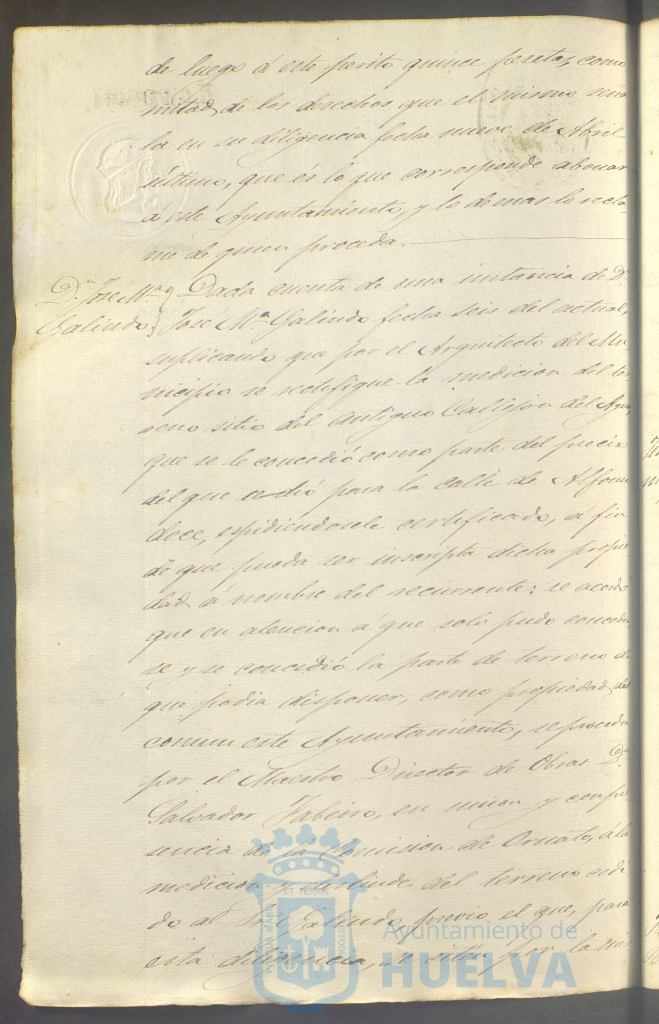 de luego á este perito quince pesetas, como
mitad de los derechos que el mismo seña
la en su diligencia fecha nueve de Abril
último, que és lo que corresponde abonar
á este Ayuntamiento, y lo demas lo recla-
me de quien proceda.
Dn. Jose Ma. Dada cuenta de una instancia de D.
Galindo. Jose Ma. Galindo fecha seis del actual,
suplicando que por el Arquitecto del Mu
nicipio se rectifique la medicion del te
rreno sitio del antiguo Callejon del Agua
que se le concedió como parte del precio
del que cedió para la calle de Alfonso
doce, espidiendosele certificado, á fin
de que pueda ser inscripta dicha propie
dad á nombre del recurrente: se acordó
que en atencion á que solo pudo conceder
se y se concedió la parte de terreno de
que podia disponer, como propiedad del
comun este Ayuntamiento, se proceda
por el Maestro Director de Obras Dn.
Salvador Fabeiro, en union y con pre
sencia de la Comision de Ornato, á la
medicion y deslinde del terreno cedi
do al Sor. Galindo, previo el que, para
esta diligencia, se por la mis
Ayuntamiento de
HUELVA